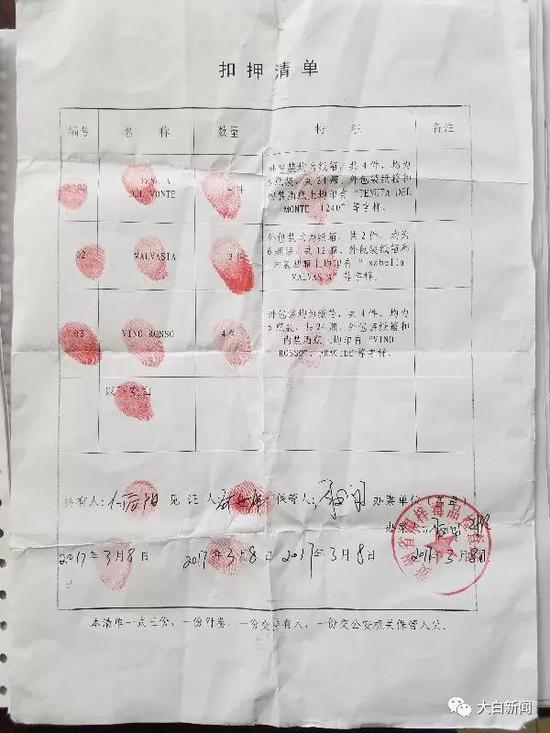 扣押清单
编号 名 称 数量 特 征 备注
03 TENGTA DEL MONTE 件
外包装均为纸箱，共4件，均为
6瓶装，共24瓶，外包装纸箱和
内装酒瓶上均印有"TENGTA DEL
MONTE 1240"等字样。
02 MALVASIA 2件
外包装均为纸箱，共2件，均为
6瓶装，共12瓶，外包装纸箱和
等字样。
03 VINO ROSSO 4件
外包装均为纸箱，共4件，均为
6瓶装，共24瓶，外包装纸箱和
内装酒瓶上均印有"VINO
ROSSO"、 等字样。
以
持有人： 见证人 保管人： 办案单位（盖章）
2017年3月8日 2017年3月8日 2017年3月8日 2017年3月8日
本清单一式三份，一份附卷，一份交持有人，一份交公安机关保管人员。
大白新闻